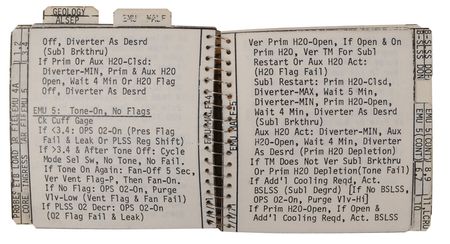 GEOLOGY
ALSEP
EMU MALF
Off, Diverter As Desrd
(Subl Brkthru)
If Prim H2O-Clsd:
Diverter-MIN, Prim & Aux H2O
Open, Wait 4 Min Or H2O Flag
Off, Diverter As Desrd
EMU 5: Tone-On, No Flags
Ck Cuff Gage
If <3.4: OPS O2-On (Pres Flag
Fail & Leak Or PLSS Reg Shift)
If >3.4 & After Tone Off: Cycle
Mode Sel Sw, No Tone, No Fail.
If Tone On Again: Fan-Off 5 Sec,
Ver Vent Flag-P, Then Fan-On.
If No Flag: OPS O2-On, Purge
Vlv-Low (Vent Flag & Fan Fail)
If PLSS O2 Decr: OPS O2-On
(O2 Flag Fail & Leak)
Ver Prim H2O-Open, If Open & On
Prim H2O, Ver TM For Subl
Restart Or Aux H2O Act:
(H2O Flag Fail)
Subl Restart: Prim H2O-Clsd,
Diverter-MAX, Wait 5 Min,
Diverter-MIN, Prim H2O-Open,
Wait 4 Min, Diverter As Desrd
(Subl Brkthru)
Aux H2O Act: Diverter-MIN, Aux
H2O-Open, Wait 4 Min, Diverter
As Desrd (Prim H2O Depletion)
If TM Does Not Ver Subl Brkthru
Or Prim H2O Depletion(Tone Fail)
If Add'l Cooling Reqd, Act.
BSLSS (Subl Degr) [If No BSLSS,
OPS O2-On, Purge Vlv-Hi]
If Prim H2O-Open, If Open &
Add'l Cooling Reqd, Act. BSLSS